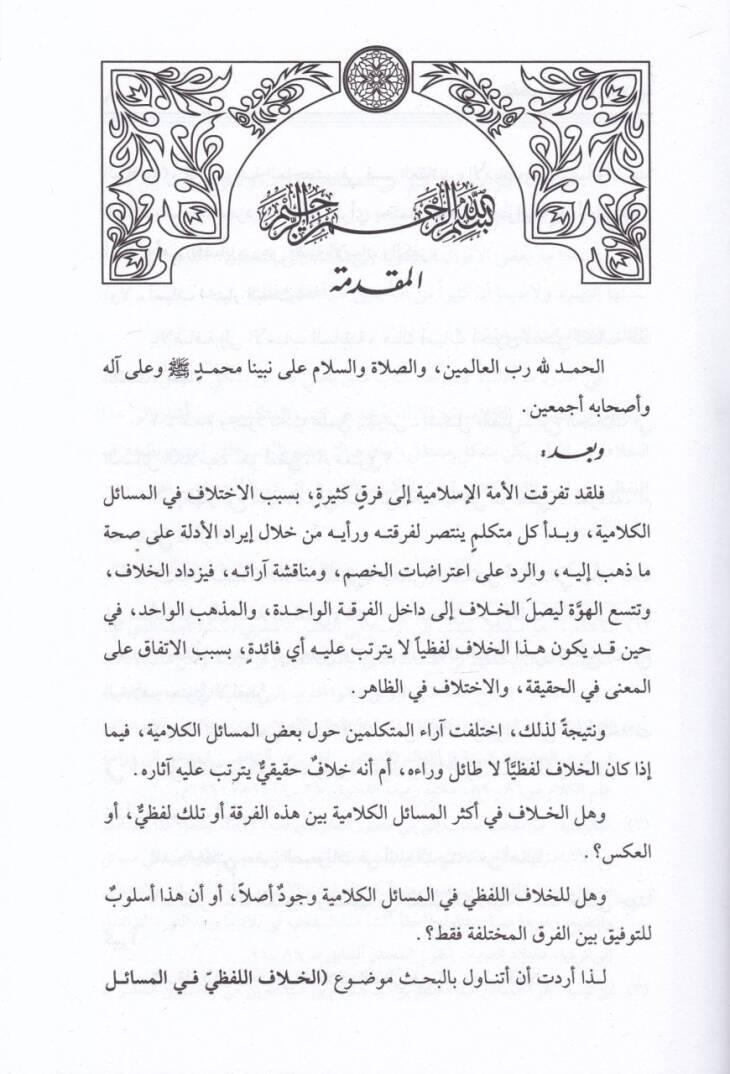 بسم الله الرحمن الرحيم
المقدمة
الحمد لله رب العالمين، والصلاة والسلام على نبينا محمدٍ ﷺ وعلى آله
وأصحابه أجمعين.
وبعد:
فلقد تفرقت الأمة الإسلامية إلى فرقٍ كثيرةٍ، بسبب الاختلاف في المسائل
الكلامية، وبدأ كل متكلمٍ ينتصر لفرقته ورأيه من خلال إيراد الأدلة على صحة
ما ذهب إليه، والرد على اعتراضات الخصم، ومناقشة آرائه، فيزداد الخلاف،
وتتسع الهوَّة ليصلَ الخلاف إلى داخل الفرقة الواحدة، والمذهب الواحد، في
حين قد يكون هذا الخلاف لفظياً لا يترتب عليه أي فائدةٍ، بسبب الاتفاق على
المعنى في الحقيقة، والاختلاف في الظاهر.
ونتيجةً لذلك، اختلفت آراء المتكلمين حول بعض المسائل الكلامية، فيما
إذا كان الخلاف لفظيَّاً لا طائل وراءه، أم أنه خلافٌ حقيقيٌّ يترتب عليه آثاره.
وهل الخلاف في أكثر المسائل الكلامية بين هذه الفرقة أو تلك لفظيٌّ، أو
العكس؟.
وهل للخلاف اللفظي في المسائل الكلامية وجودٌ أصلاً، أو أن هذا أسلوبٌ
للتوفيق بين الفرق المختلفة فقط؟.
لذا أردت أن أتناول بالبحث موضوع (الخلاف اللفظيّ في المسائل